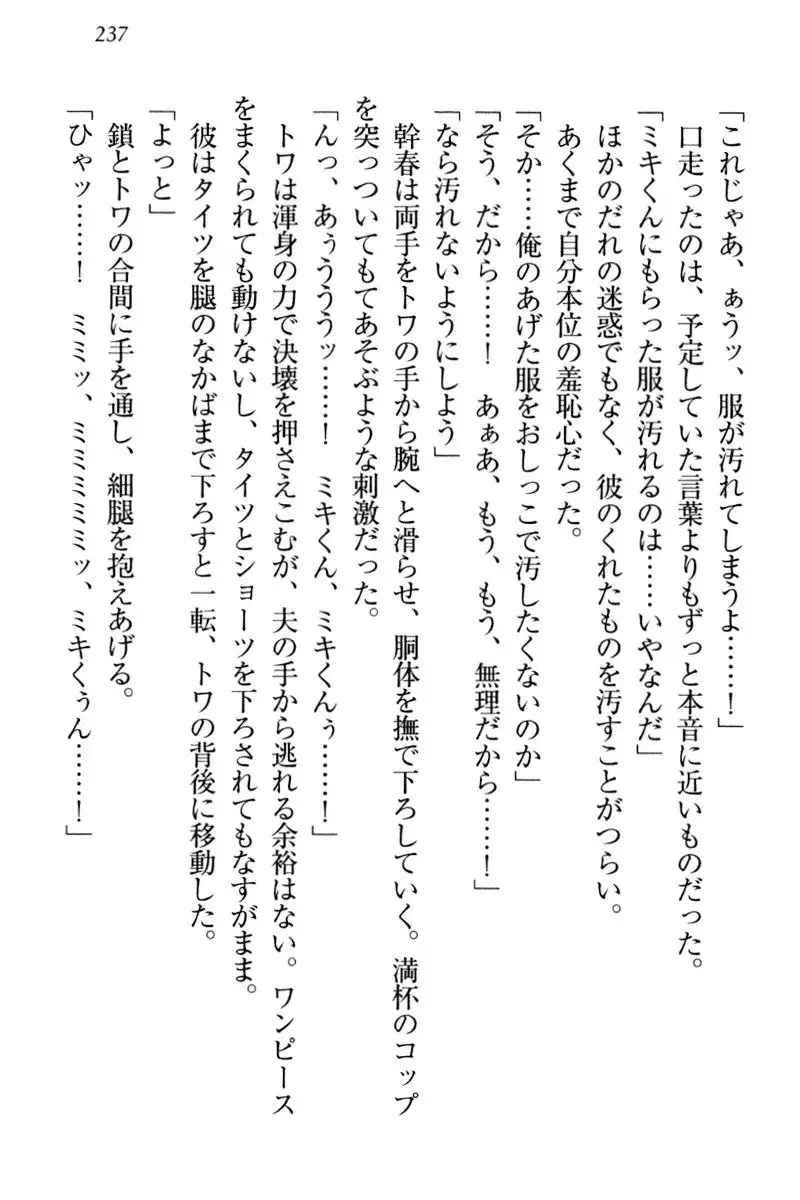 237
「これじゃあ、ぁうッ、服が汚れてしまうよ……！」
口走ったのは、予定していた言葉よりもずっと本音に近いものだった。
「ミキくんにもらった服が汚れるのは……いやなんだ」
ほかのだれの迷惑でもなく、彼のくれたものを汚すことがつらい。
あくまで自分本位の羞恥心だった。
「そか……俺のあげた服をおしっこで汚したくないのか」
「そう、だから……！　あぁあ、もう、もう、無理だから……！」
「なら汚れないようにしよう」
幹春は両手をトワの手から腕へと滑らせ、胴体を撫で下ろしていく。満杯のコップ
を突っついてもてあそぶような刺激だった。
「んっ、あぅううぅッ……！　ミキくん、ミキくんぅ……！」
トワは渾身の力で決壊を押さえこむが、夫の手から逃れる余裕はない。ワンピース
をまくられても動けないし、タイツとショーツを下ろされてもなすがまま。
彼はタイツを腿のなかばまで下ろすと一転、トワの背後に移動した。
「よっと」
鎖とトワの合間に手を通し、細腿を抱えあげる。
「ひゃッ……！　ミミッ、ミミミミミッ、ミキくぅん……！」